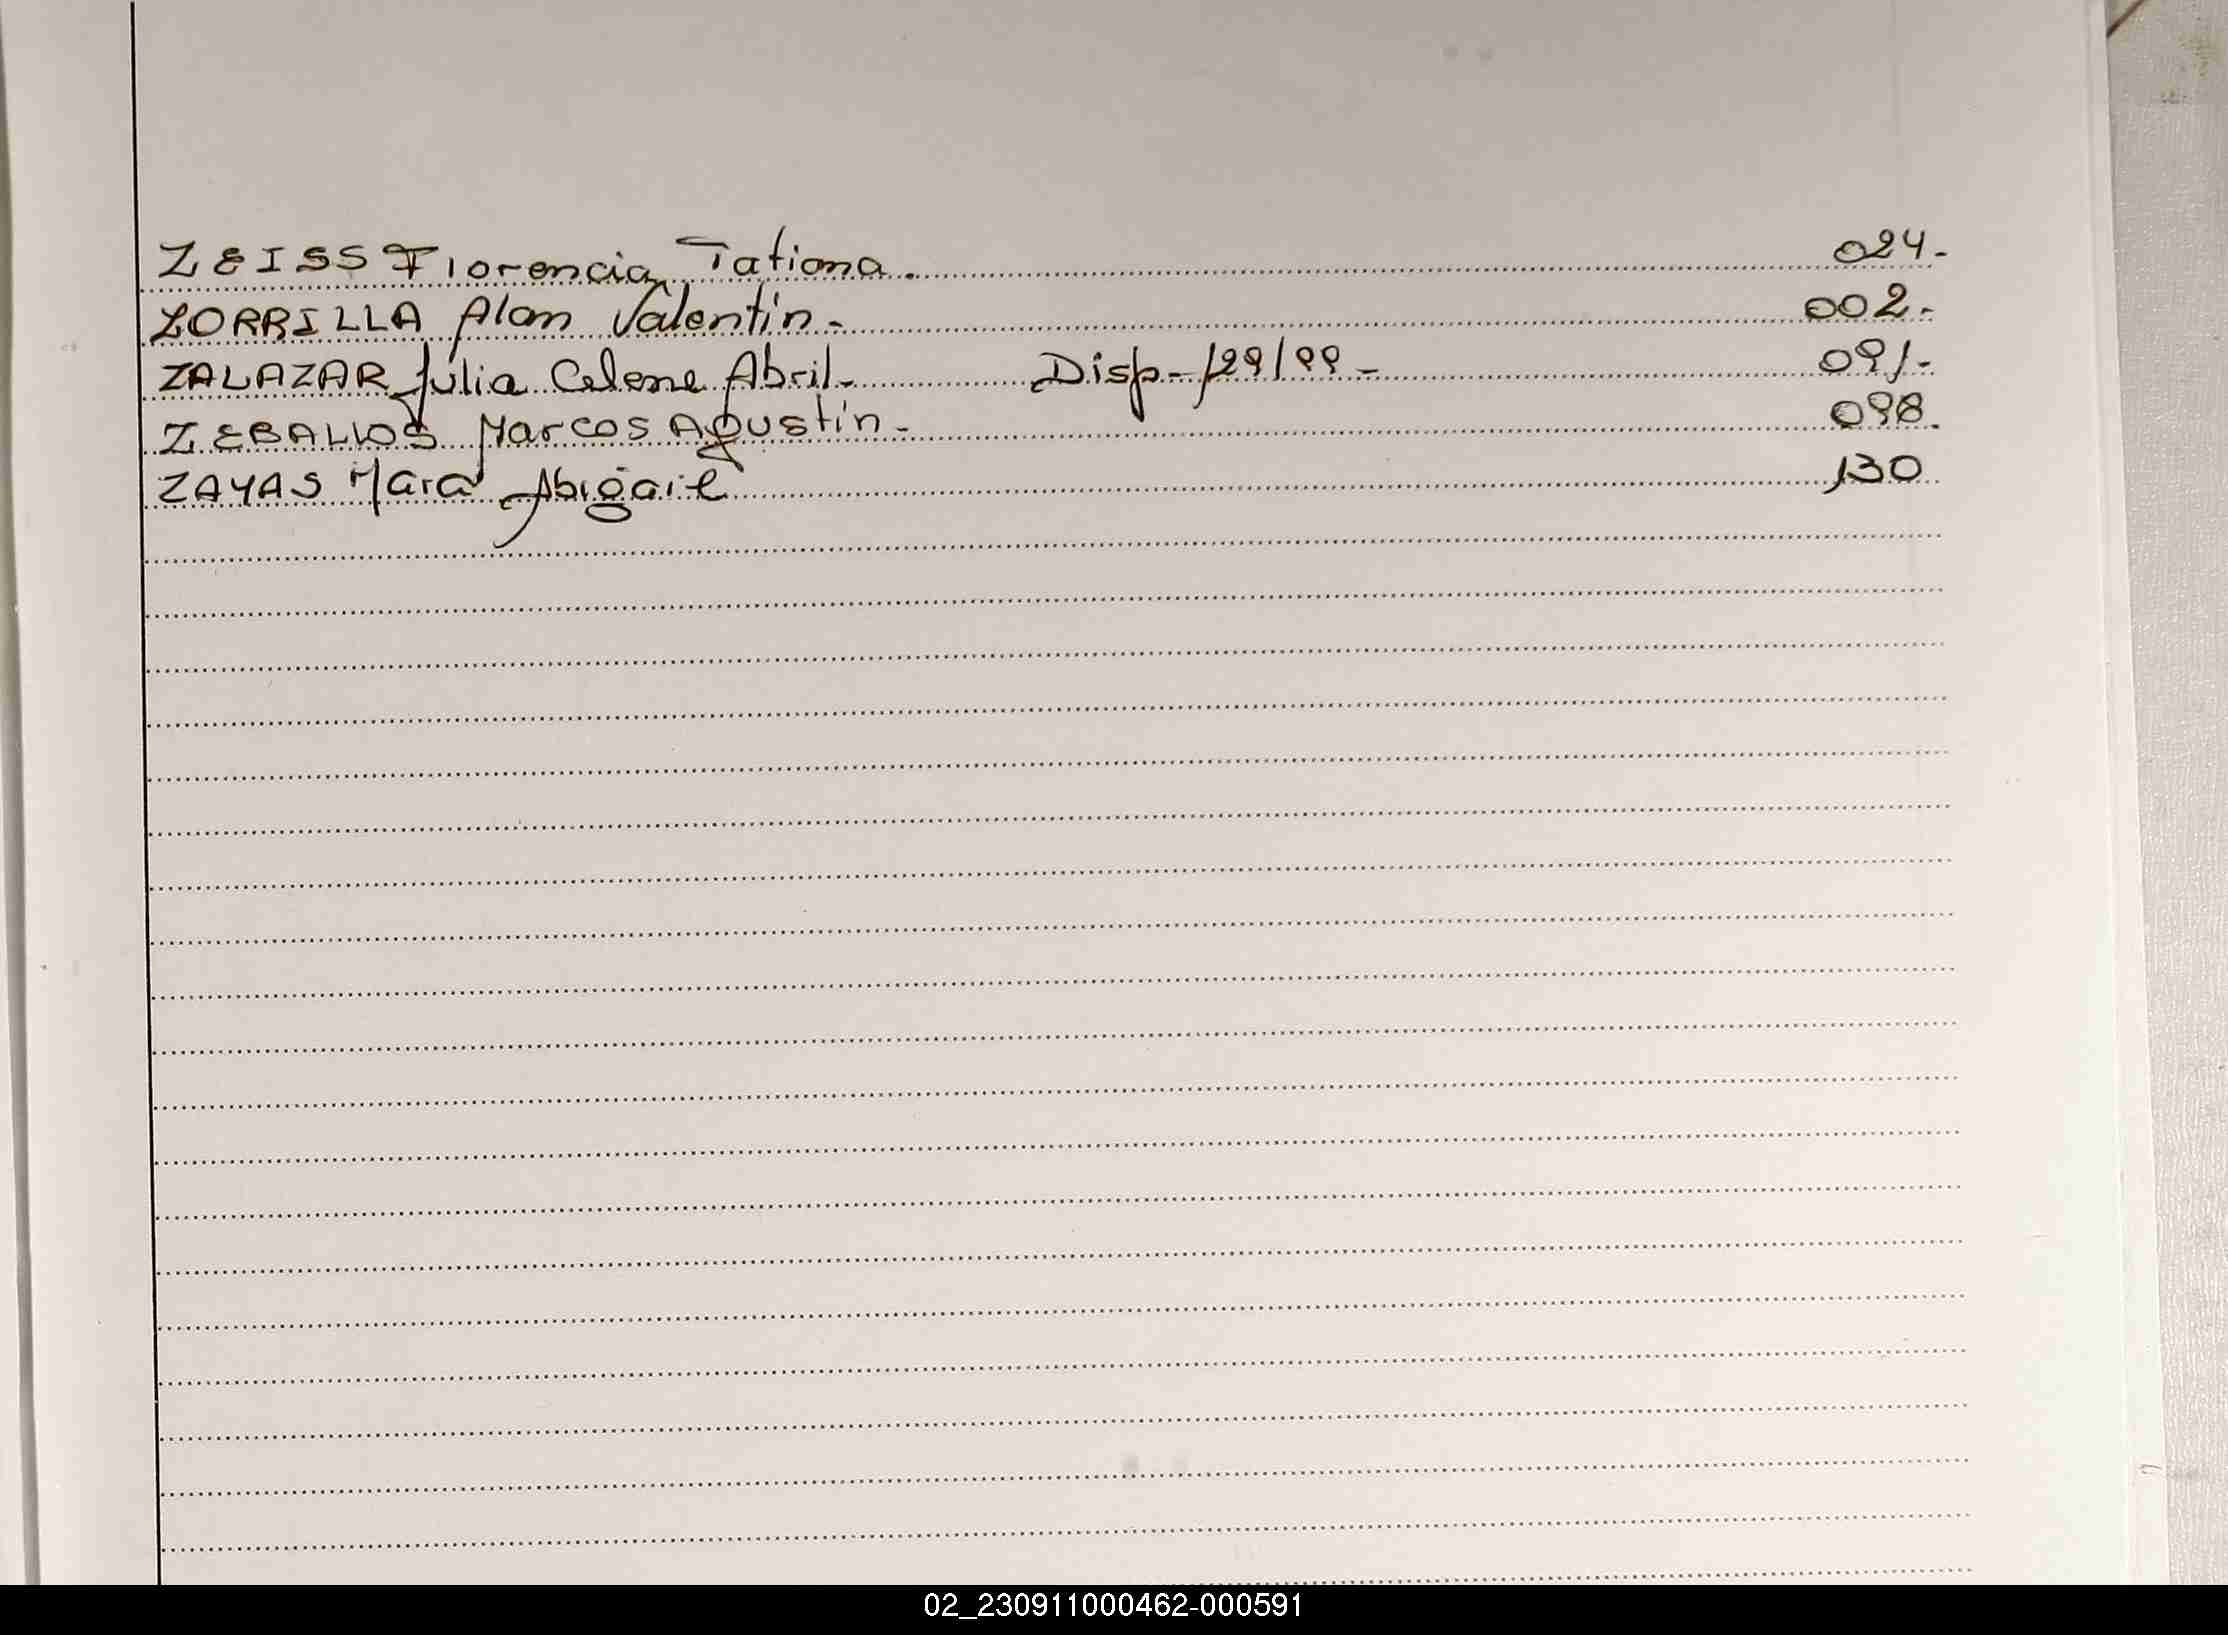 ZEISS Florencia Tatiana. 024-
ZORRILLA Alan Valentín- 002-
ZALAZAR Julia Celene Abril- Disp-129/99- 091-
ZEBALLOS Marcos Agustín- 098.
ZAYAS Mara Abigail 130
02_230911000462-000591